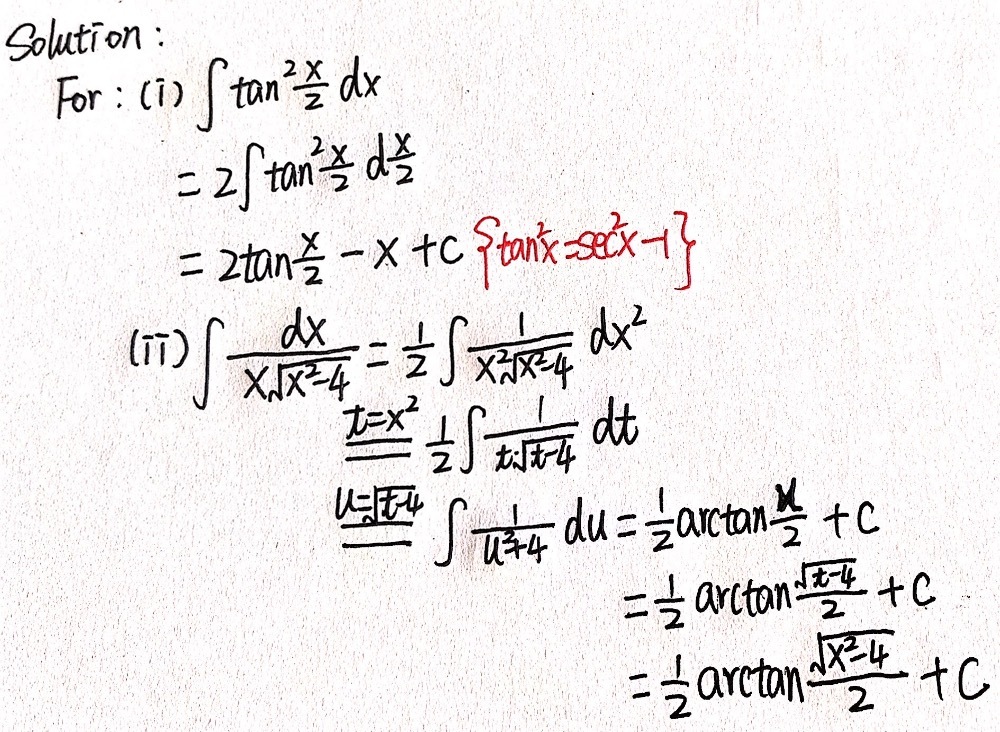 Solution:
For: (i) ∫ tan² x/2 dx
= 2∫ tan² x/2 d x/2
= 2tan x/2 − x + C {tan²x=sec²x−1}
(ii) ∫ dx/(x√(x²−4)) = 1/2 ∫ 1/(x²√(x²−4)) dx²
t=x² == 1/2 ∫ 1/(t·√(t−4)) dt
u=√(t−4) == ∫ 1/(u²+4) du = 1/2 arctan u/2 + C
= 1/2 arctan √(t−4)/2 + C
= 1/2 arctan √(x²−4)/2 + C